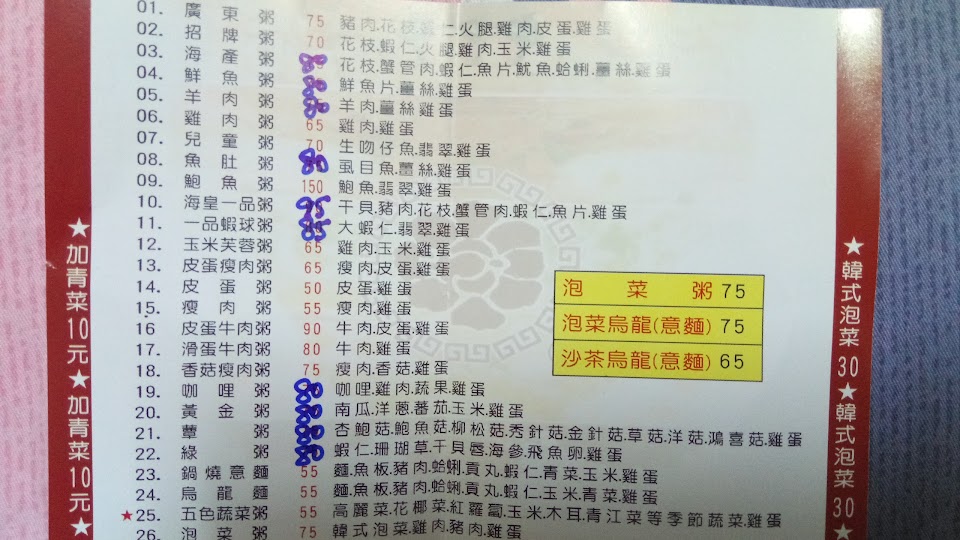 01. 廣東粥 75 豬肉.花枝.蝦仁.火腿.雞肉.皮蛋.雞蛋
02. 招牌粥 70 花枝.蝦仁.火腿.雞肉.玉米.雞蛋
03. 海產粥 80 花枝.蟹管肉.蝦仁.魚片.魷魚.蛤蜊.薑絲.雞蛋
04. 鮮魚粥 80 鮮魚片.薑絲.雞蛋
05. 羊肉粥 80 羊肉.薑絲.雞蛋
06. 雞肉粥 65 雞肉.雞蛋
07. 兒童粥 70 生吻仔魚.翡翠.雞蛋
08. 魚肚粥 80 虱目魚.薑絲.雞蛋
09. 鮑魚粥 150 鮑魚.翡翠.雞蛋
10. 海皇一品粥 95 干貝.豬肉.花枝.蟹管肉.蝦仁.魚片.雞蛋
11. 一品蝦球粥 大蝦仁.翡翠.雞蛋
12. 玉米芙蓉粥 65 雞肉.玉米.雞蛋
13. 皮蛋瘦肉粥 65 瘦肉.皮蛋.雞蛋
14. 皮蛋粥 50 皮蛋.雞蛋
15. 瘦肉粥 55 瘦肉.雞蛋
16 皮蛋牛肉粥 90 牛肉.皮蛋.雞蛋
17. 滑蛋牛肉粥 80 牛肉.雞蛋
18. 香菇瘦肉粥 75 瘦肉.香菇.雞蛋
19. 咖哩粥 80 咖哩.雞肉.蔬果.雞蛋
20. 黃金粥 80 南瓜.洋蔥.蕃茄.玉米.雞蛋
21. 蕈粥 80 杏鮑菇.鮑魚菇.柳松菇.秀針菇.金針菇.草菇.洋菇.鴻喜菇.雞蛋
22. 綠粥 80 蝦仁.珊瑚草.干貝唇.海參.飛魚卵.雞蛋
23. 鍋燒意麵 55 麵.魚板.豬肉.蛤蜊.貢丸.蝦仁.青菜.玉米.雞蛋
24. 烏龍麵 55 麵.魚板.豬肉.蛤蜊.貢丸.蝦仁.玉米.青菜.雞蛋
★25. 五色蔬菜粥 55 高麗菜.花椰菜.紅蘿蔔.玉米.木耳.青江菜等季節蔬菜.雞蛋
26. 泡菜粥 75 韓式泡菜.雞肉.豬肉.雞蛋
泡菜粥 75
泡菜烏龍(意麵) 75
沙茶烏龍(意麵) 65
★加青菜10元★加青菜10元★
★韓式泡菜30★韓式泡菜30★